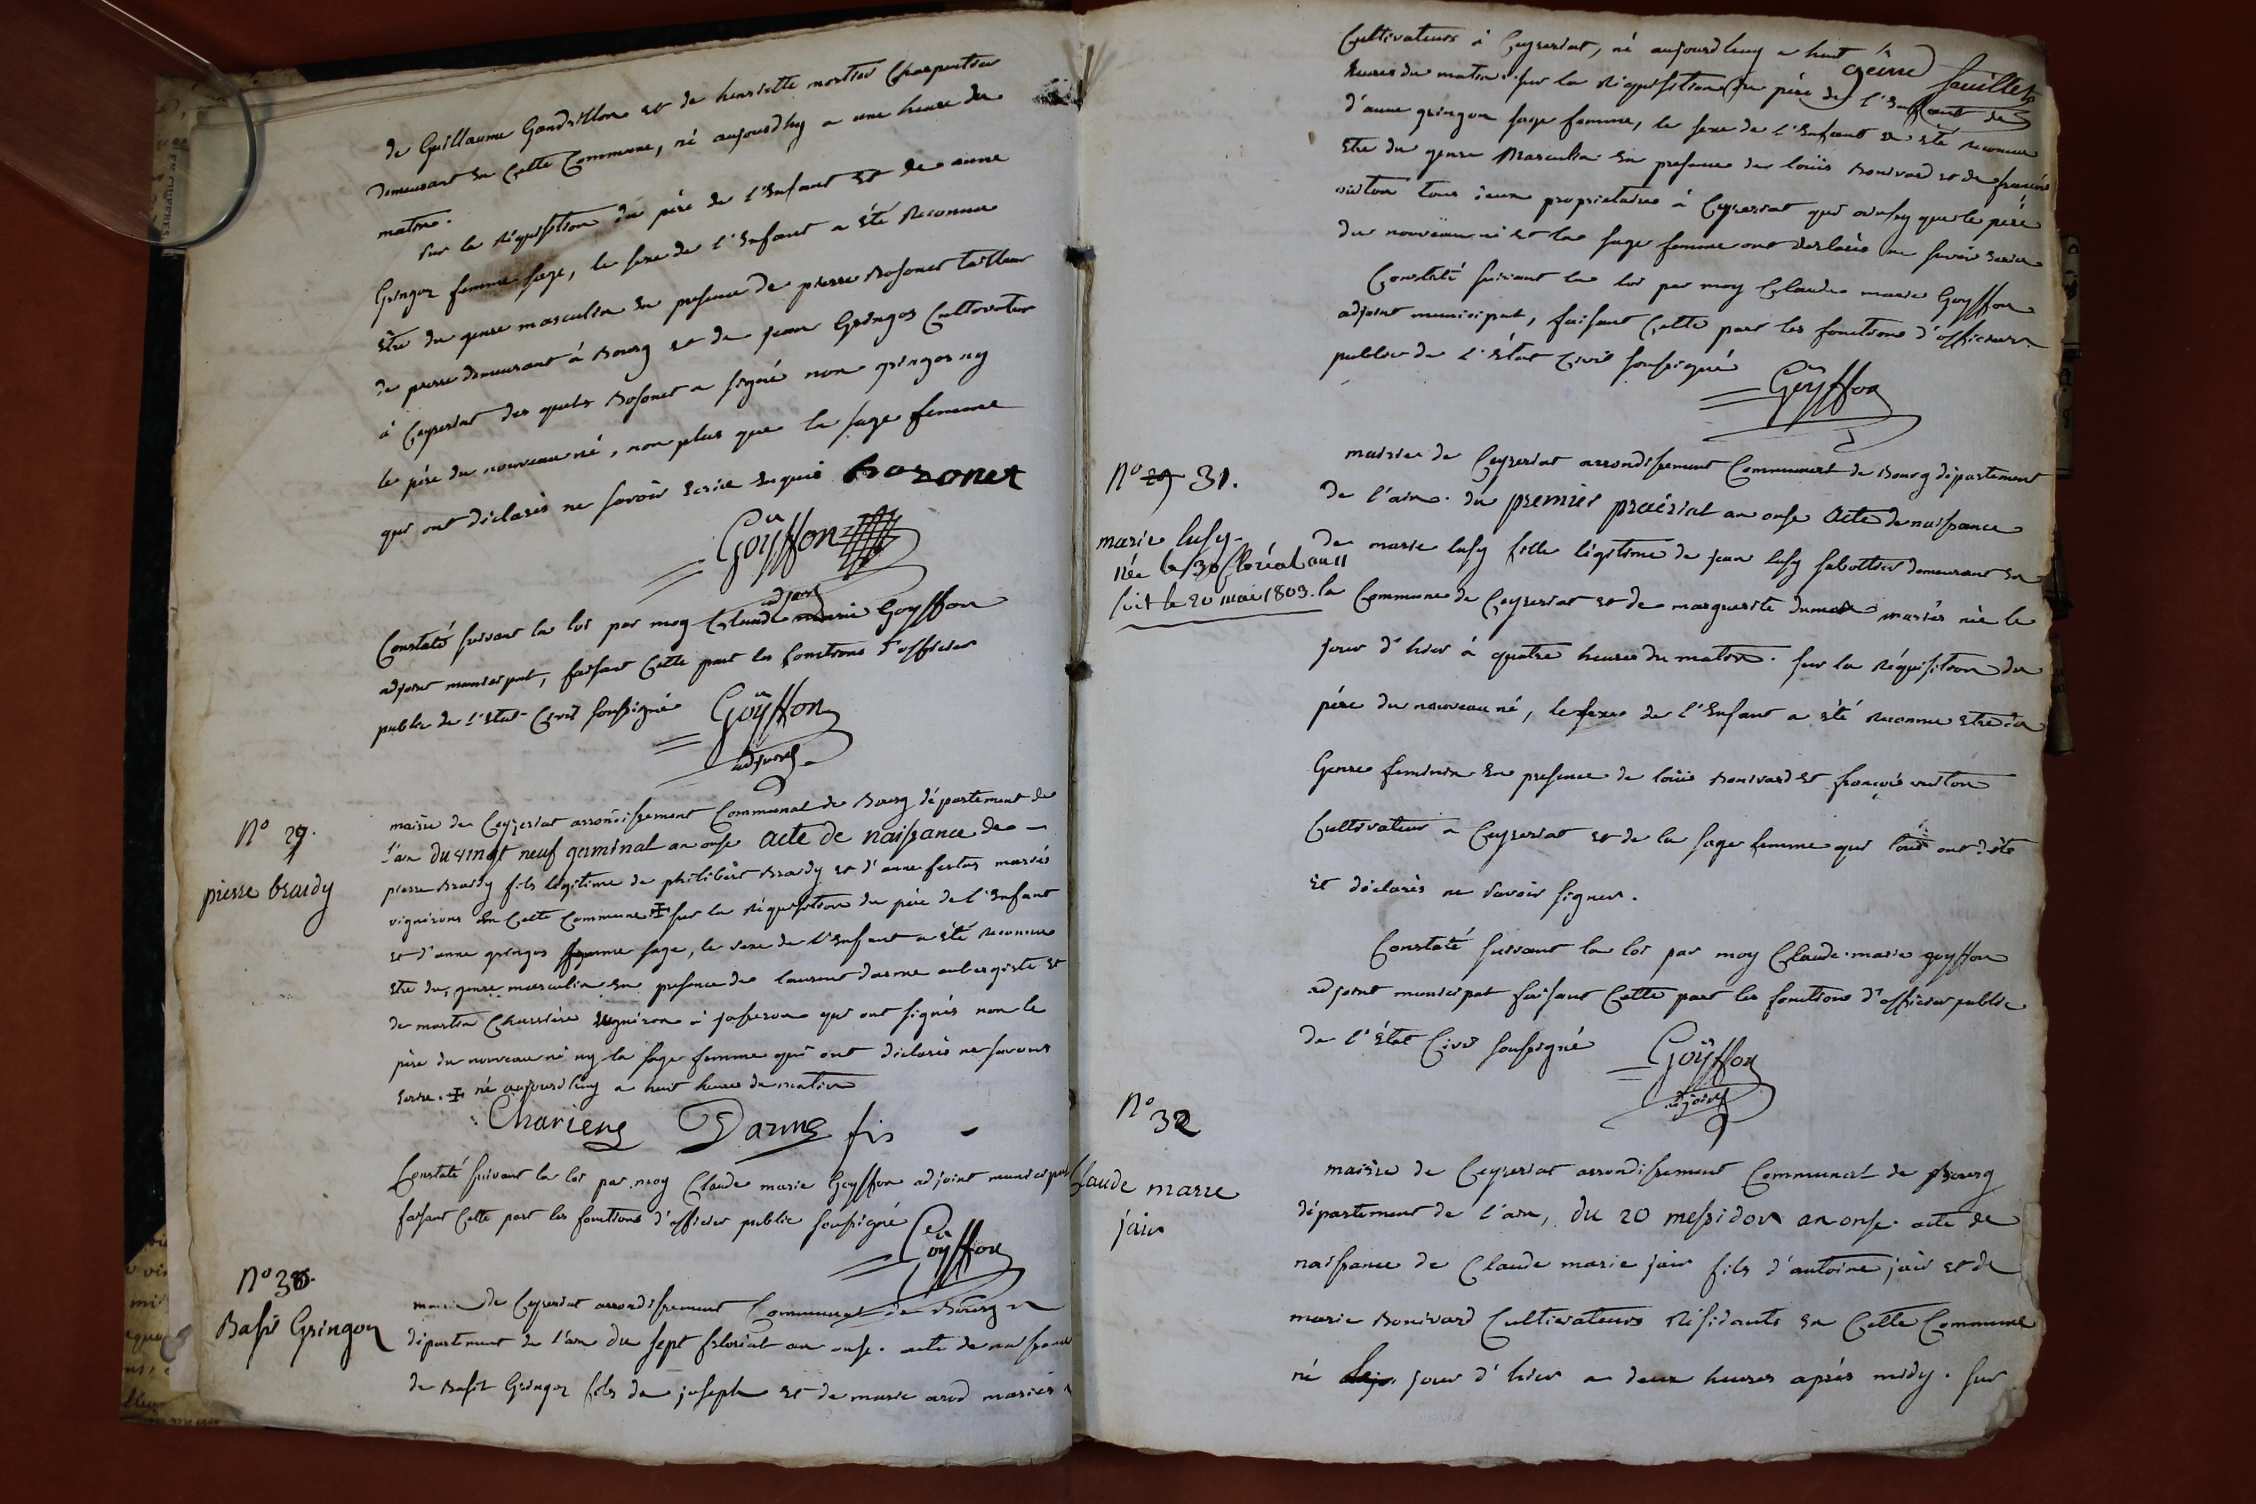 de Guillaume Gandrillon et de henriette mortier Charpentier
demeurant en Cette Commune, né aujourdhuy a une heure du
matin.
Sur la réquisition du père de l'Enfant et de anne
Gringoz femme sage, le sexe de l'Enfant a été reconnu
être du genre masculin en presence de pierre Bosonet tailleur
de pierre demeurant à Bourg et de jean Gringos Cultivateur
à Ceyseriat des quels Bosonet a signé non gringos ny
le père du nouveau né, non plus que la sage femme
qui ont déclarés ne savoir écrire enquis bozonet
Goÿffon
adjoint
Constaté suivant la loi par moy Claude marie Goyffon
adjoint municipal, faisant Cette part les fonctions d'officier
public de l'état Civil soussigné Goÿffon
adjoint
N° 29.
pierre braidy
mairie de Ceyzeriat arrondissement Communal de Bourg département de
l'ain du vingt neuf germinal an onse acte de naissance de
pierre Braidy fils légitime de philibert Braidy et d'anne festas mariés
vignerons en Cette Commune ‡ sur la réquisition du père de l'Enfant
et d'anne gringos femme sage, le sexe de l'Enfant a été reconnu
etre du genre masculin en presence de laurent darme aubergiste et
de martin Charriere vigneron à jasseron qui ont signés non le
père du nouveau né ny la sage femme qui ont déclarés ne savoir
écrire. ‡ né aujourdhuy a huit heures du matin
Chariere Darme fis
Constaté suivant la loi par moy Claude marie Goyffon adjoint municipal
faisant Cette part les fonctions d'officier public soussigné
Goÿffon
N° 30.
Basi Gringoz
mairie de Ceyseriat arrondissement Communal de Bourg
département de l'ain du sept floréal an onse. acte de naissance
de Basil Gringoz fils de joseph et de marie arod mariés
Cultivateurs à Ceyseriat, né aujourdhuy a huit
feuillet
heures du matin. sur la réquisition du père de l'Enfant et
d'anne gringoz sage femme, le sexe de l'Enfant a été reconnu
etre du genre Masculin en presence de loüis Bonivard et de françois
vuiton tous deux proprietaires à Ceyseriat qui ainsy que le père
du nouveau né et la sage femme ont declarés ne savoir écrire
Constaté suivant la loi par moy Claude marie Goyffon
adjoint municipal, faisant Cette part les fonctions d'officier
public de l'état Civil soussigné
Goÿffon
N° 29 31.
marie lusy.
née le 30 floréal an 11
soit le 20 mai 1803.
mairie de Ceyseriat arrondissement Communal de Bourg département
de l'ain. du premier praérial an onse Acte de naissance
de marie lusy fille légitime de jean lusy sabottier demeurant en
la Commune de Ceyseriat et de marguerite dumas mariés née le
jour d'hier à quatre heures du matin. sur la réquisition du
père du nouveau né, le sexe de l'Enfant a été reconnu etre du
Genre feminin en presence de loüis Bonivard et françois vuiton
Cultivateur a Ceyseriat et de la sage femme qui tous ont dit
et déclarés ne savoir signer.
Constaté suivant la loi par moy Claude marie goyffon
adjoint municipal faisant Cette part les fonctions d'officier public
de l'état Civil soussigné Goÿffon
adjoint
N° 32
Claude marie
jair
mairie de Ceyseriat arrondissement Communal de Bourg
département de l'ain, du 20 messidor an onse. acte de
naissance de Claude marie jair fils d'antoine jair et de
marie Bonivard Cultivateurs résidants en Cette Commune
né jour d'hier a deux heures après midy. sur